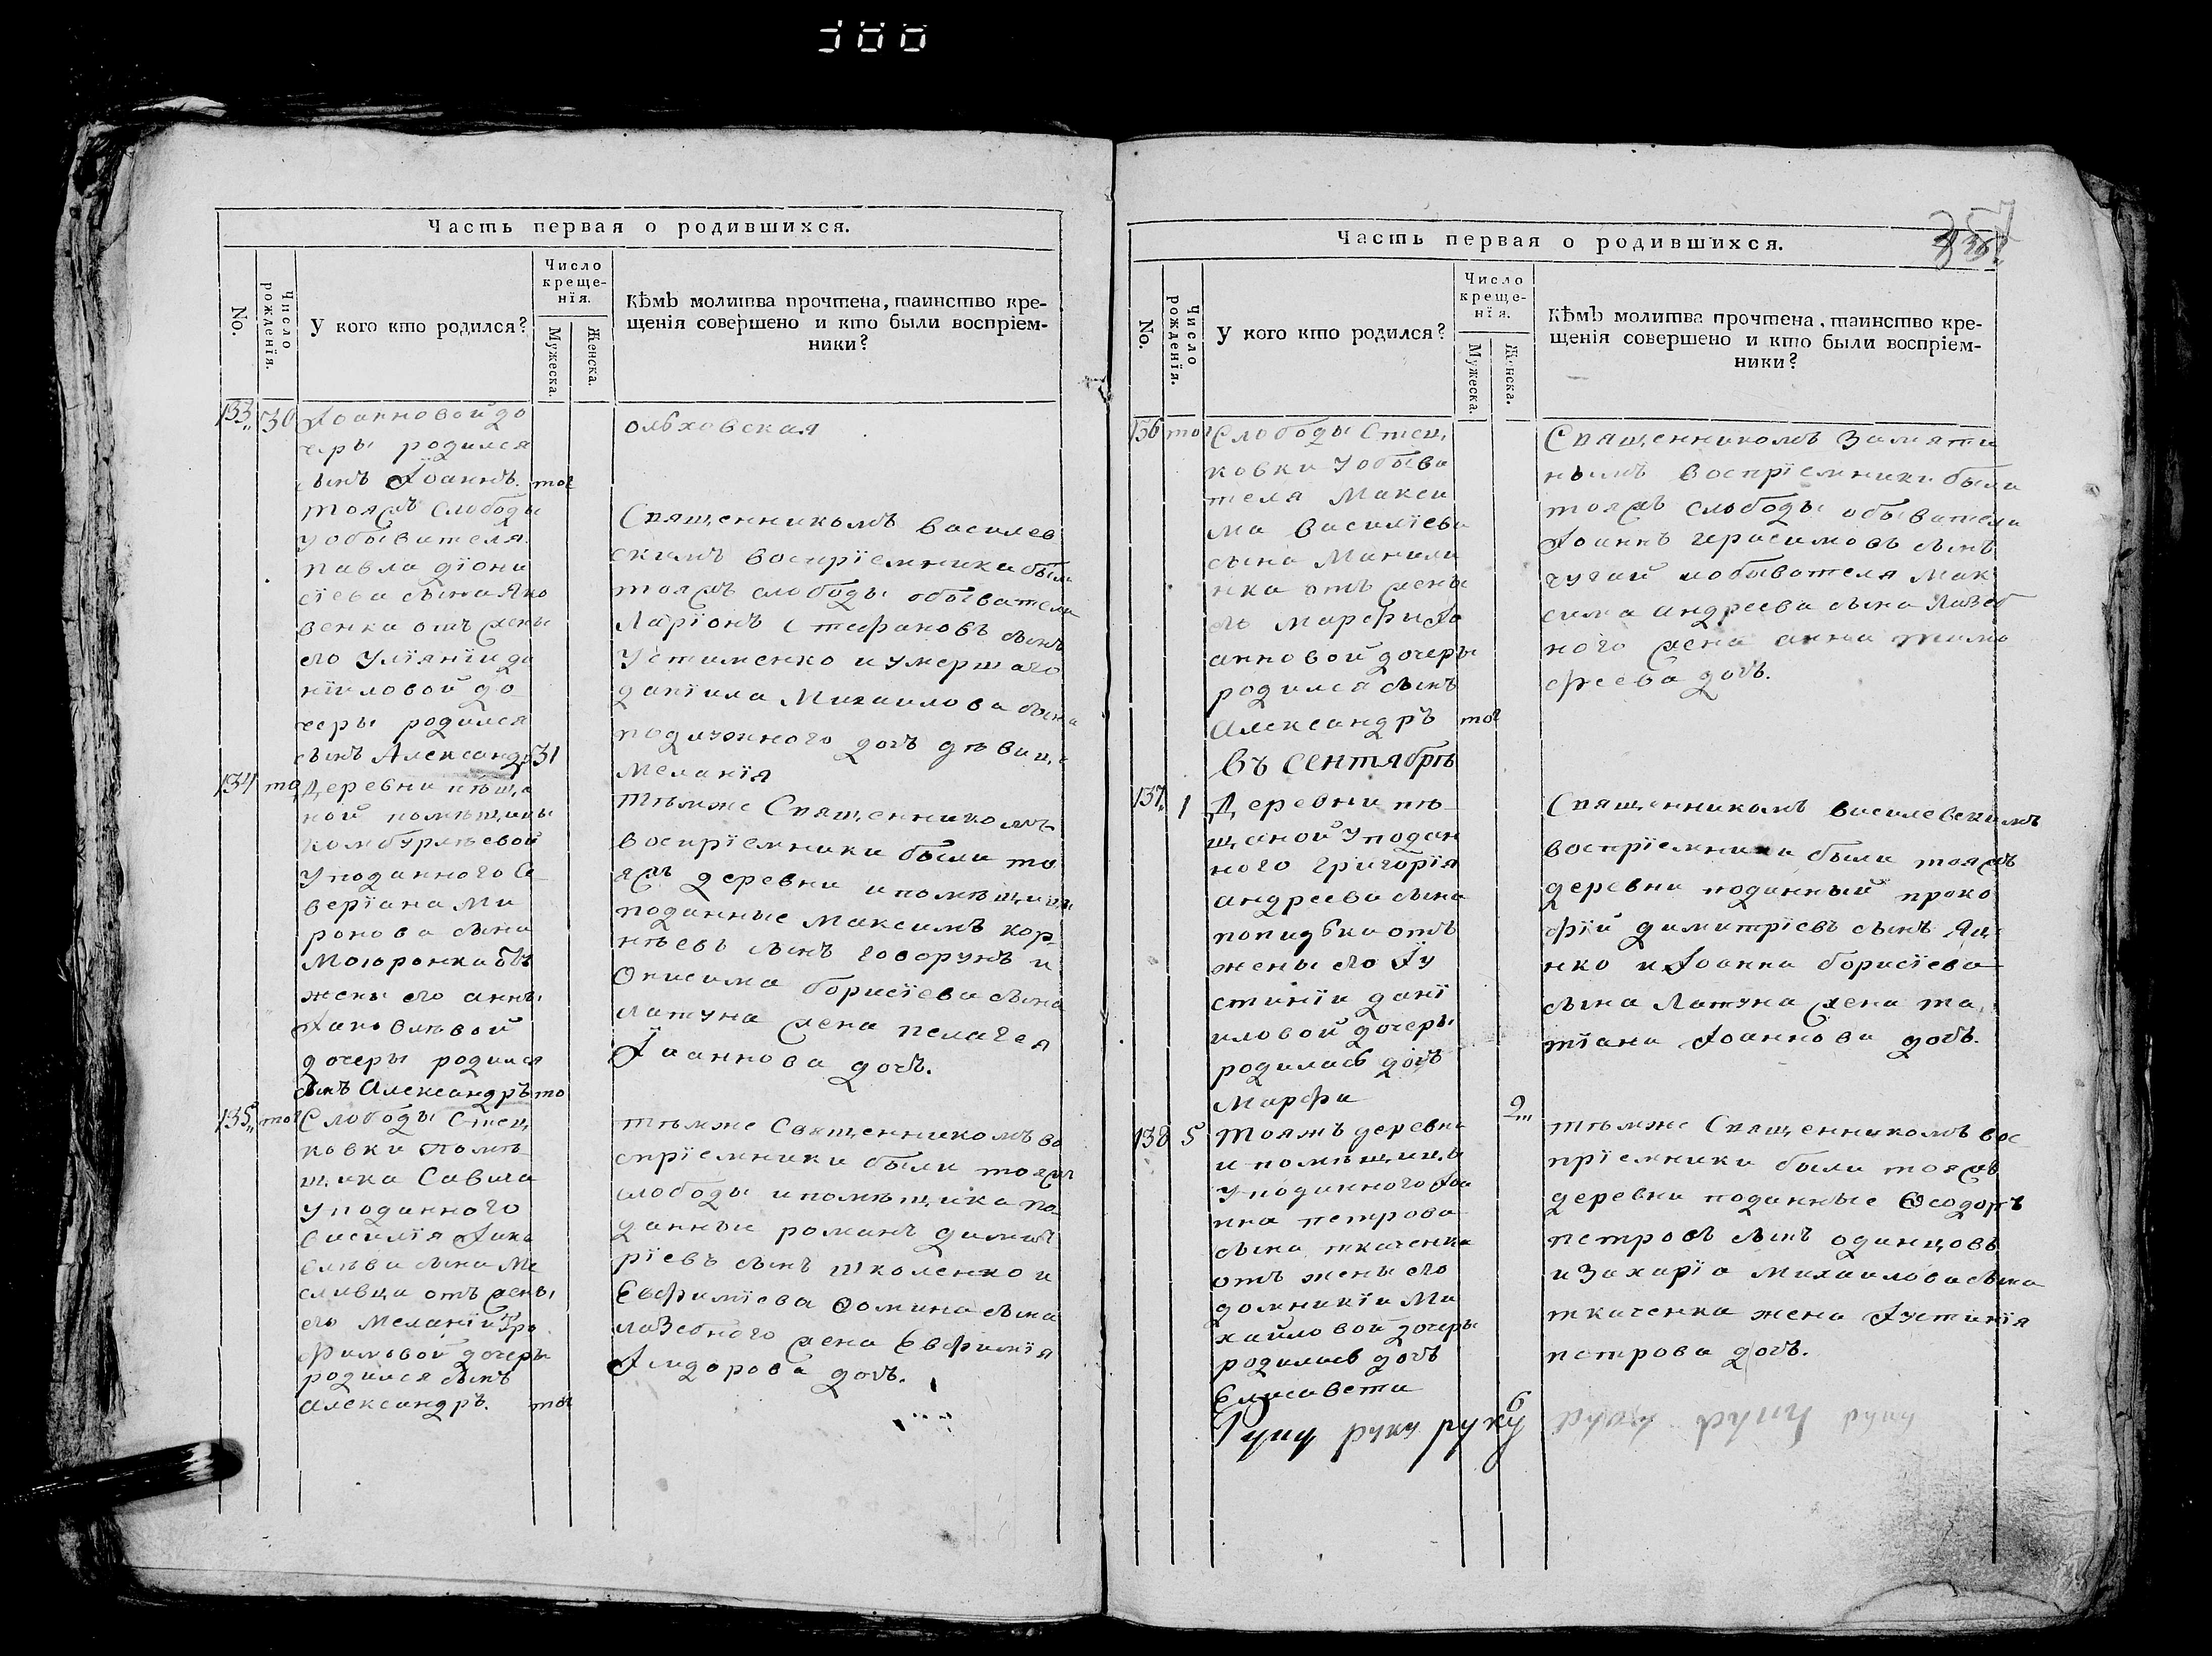 Часть первая о родившихся.
No.
Число рожденія.
У кого кто родился?
Число
креще-
нія.
Мужеска.
Женска.
Кѣмъ молитва прочтена, таинство кре-
щенія совершено и кто были воспріем-
ники?
133 30 Іоанновой до
черы родился
сынъ Іоаннъ. тог
тояжъ слободы
у обывателя
павла діони
сіева сына Яко
венка отъ жены
его Уліяніи да
ніиловой до
черы родился
сынъ Александръ 31
ольховская
Священникомъ василев
скимъ воспріемники были
тояжъ слободы обыватели
Ларіонъ Стефановъ сынъ
Устименко и умершаго
даніила Михаилова сына
подичэнного дочъ дѣвица
Меланія
134 то Деревни пѣща
ной помѣщицы
комбурлѣевой
у поданного Се
веріана Ми
ронова сына
Могоронка отъ
жены его анны
Іаковлѣвой
дочеры родился
сынъ Александръ то
тѣмже Священникомъ
воспріемники были то
яжъ деревни и помѣщицы
поданные Максимъ кор
нѣевъ сынъ говорунъ и
Онисима борисіева сына
латуна жена пелагея
Іоаннова дочъ.
135 тог Слободы Стец
ковки помѣ
щика Савича
у поданного
василія Іако
влѣва сына Ме
сливца отъ жены
его Меланіи тро
фимовой дочеры
родился сынъ
александръ. тог
тѣмже Священникомъ во
спріемники были тояжъ
слободы и помѣщика по
данные романъ димит
ріевъ сынъ школенко и
Евфиміева Ѳомина сына
лазебного жена Евфимія
Ісидорова дочъ.
Часть первая о родившихся.
357
No.
Число рожденія.
У кого кто родился?
Число
креще-
нія.
Мужеска.
Женска.
Кѣмъ молитва прочтена, таинство кре-
щенія совершено и кто были воспріем-
ники?
136 тог Слободы Стец
ковки у обыва
теля Макси
ма василіева
сына Манили
нка отъ жены
его Марфы Іо
анновой дочеры
родился сынъ
Александръ тог
Священникомъ Замяти
нымъ воспріемники были
тояжъ слободы обыватели
Іоаннъ герасимовъ сынъ
чугай и обывателя Мак
сима андреева сына Лазеб
ного жена анна тимо
фѣева дочъ.
въ сентябрѣ
137 1 Деревни пѣ
щаной у подан
ного григорія
андреева сына
попидбки отъ
жены его Іу
стиніи дані
иловой дочеры
родилась дочъ
Марфа 2
Священникомъ василевскимъ
воспріемники были тояжъ
деревни поданный проко
фій димитріевъ сынъ Яц
нко и Іоанна борисіева
сына Латуна жена та
тіана Іоаннова дочъ.
138 5 тояжъ деревни
и помѣщицы
у поданного Іоа
нна петрова
сына ткаченка
отъ жены его
домникіи Ми
хайловой дочеры
родилась дочъ
Елисавета 6
тѣмже Священникомъ вос
пріемники были тояжъ
деревни поданные Ѳеодоръ
петровъ сынъ одинцовъ
и Захаріа михаилова сына
ткаченка жена Іустинія
петрова дочъ.
руку